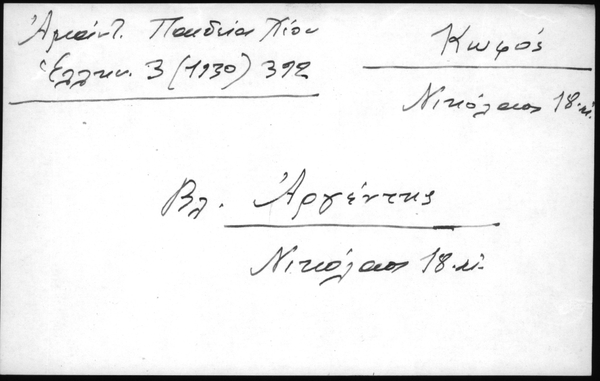 Ἀμαντ. Παιδεία Χίου
Ἑλλην. 3 (1930) 392
Κωφός
Νικόλαος 18. αἰ.
Βλ. Ἀργέντης
Νικόλαος 18. αἰ.